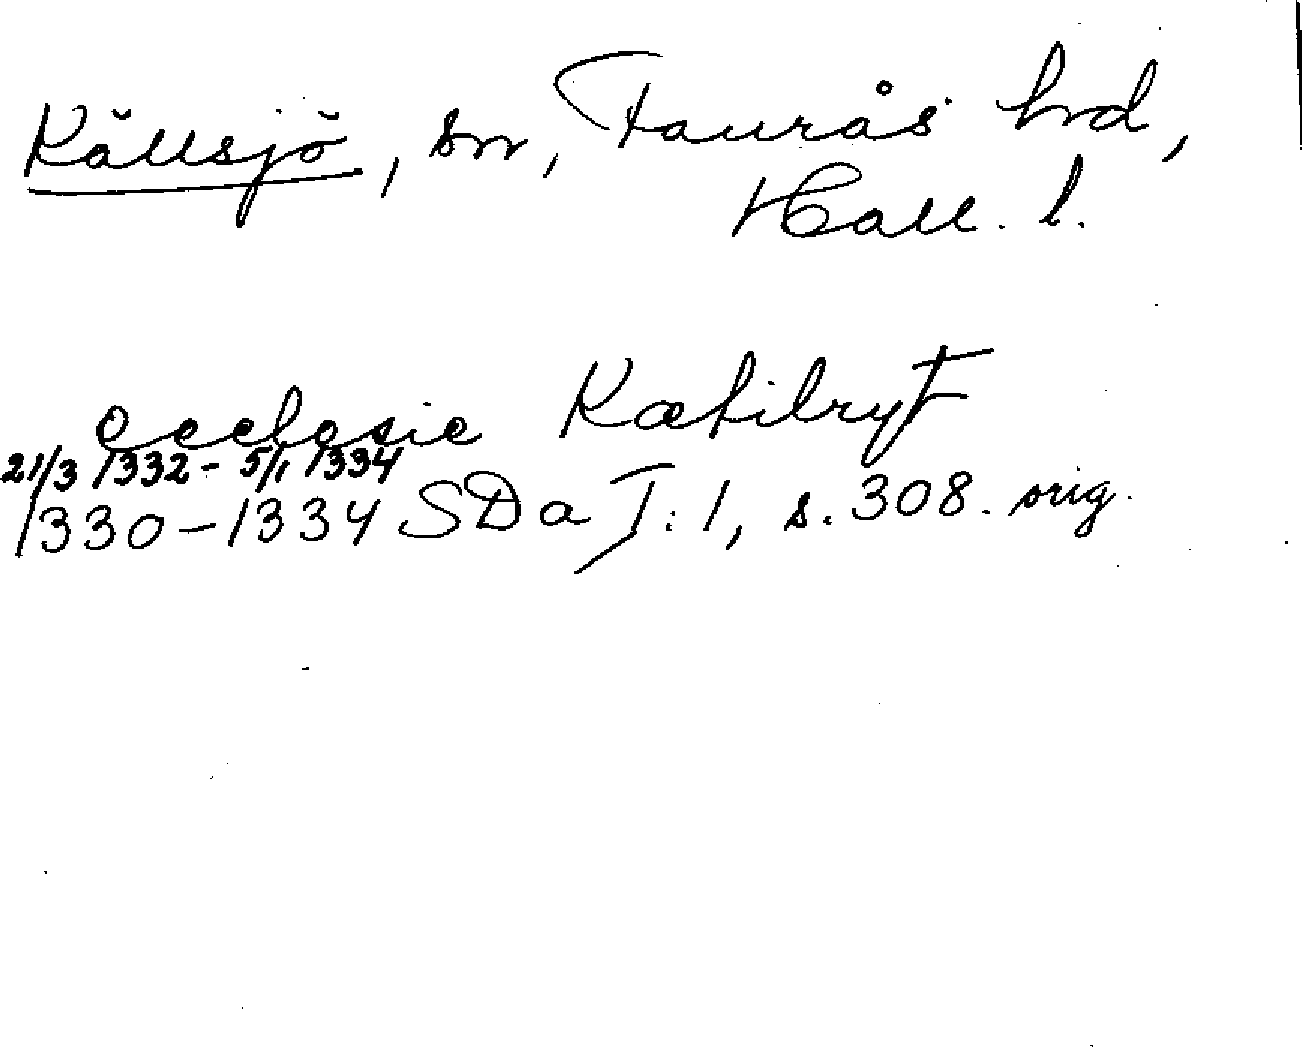 Källsjö, sn, Faurås hrd,
Hall. l.
ecclesie Kætilryt
21/3 1332 - 5/1 1334
1330-1334 SDa I:1, s. 308. orig.